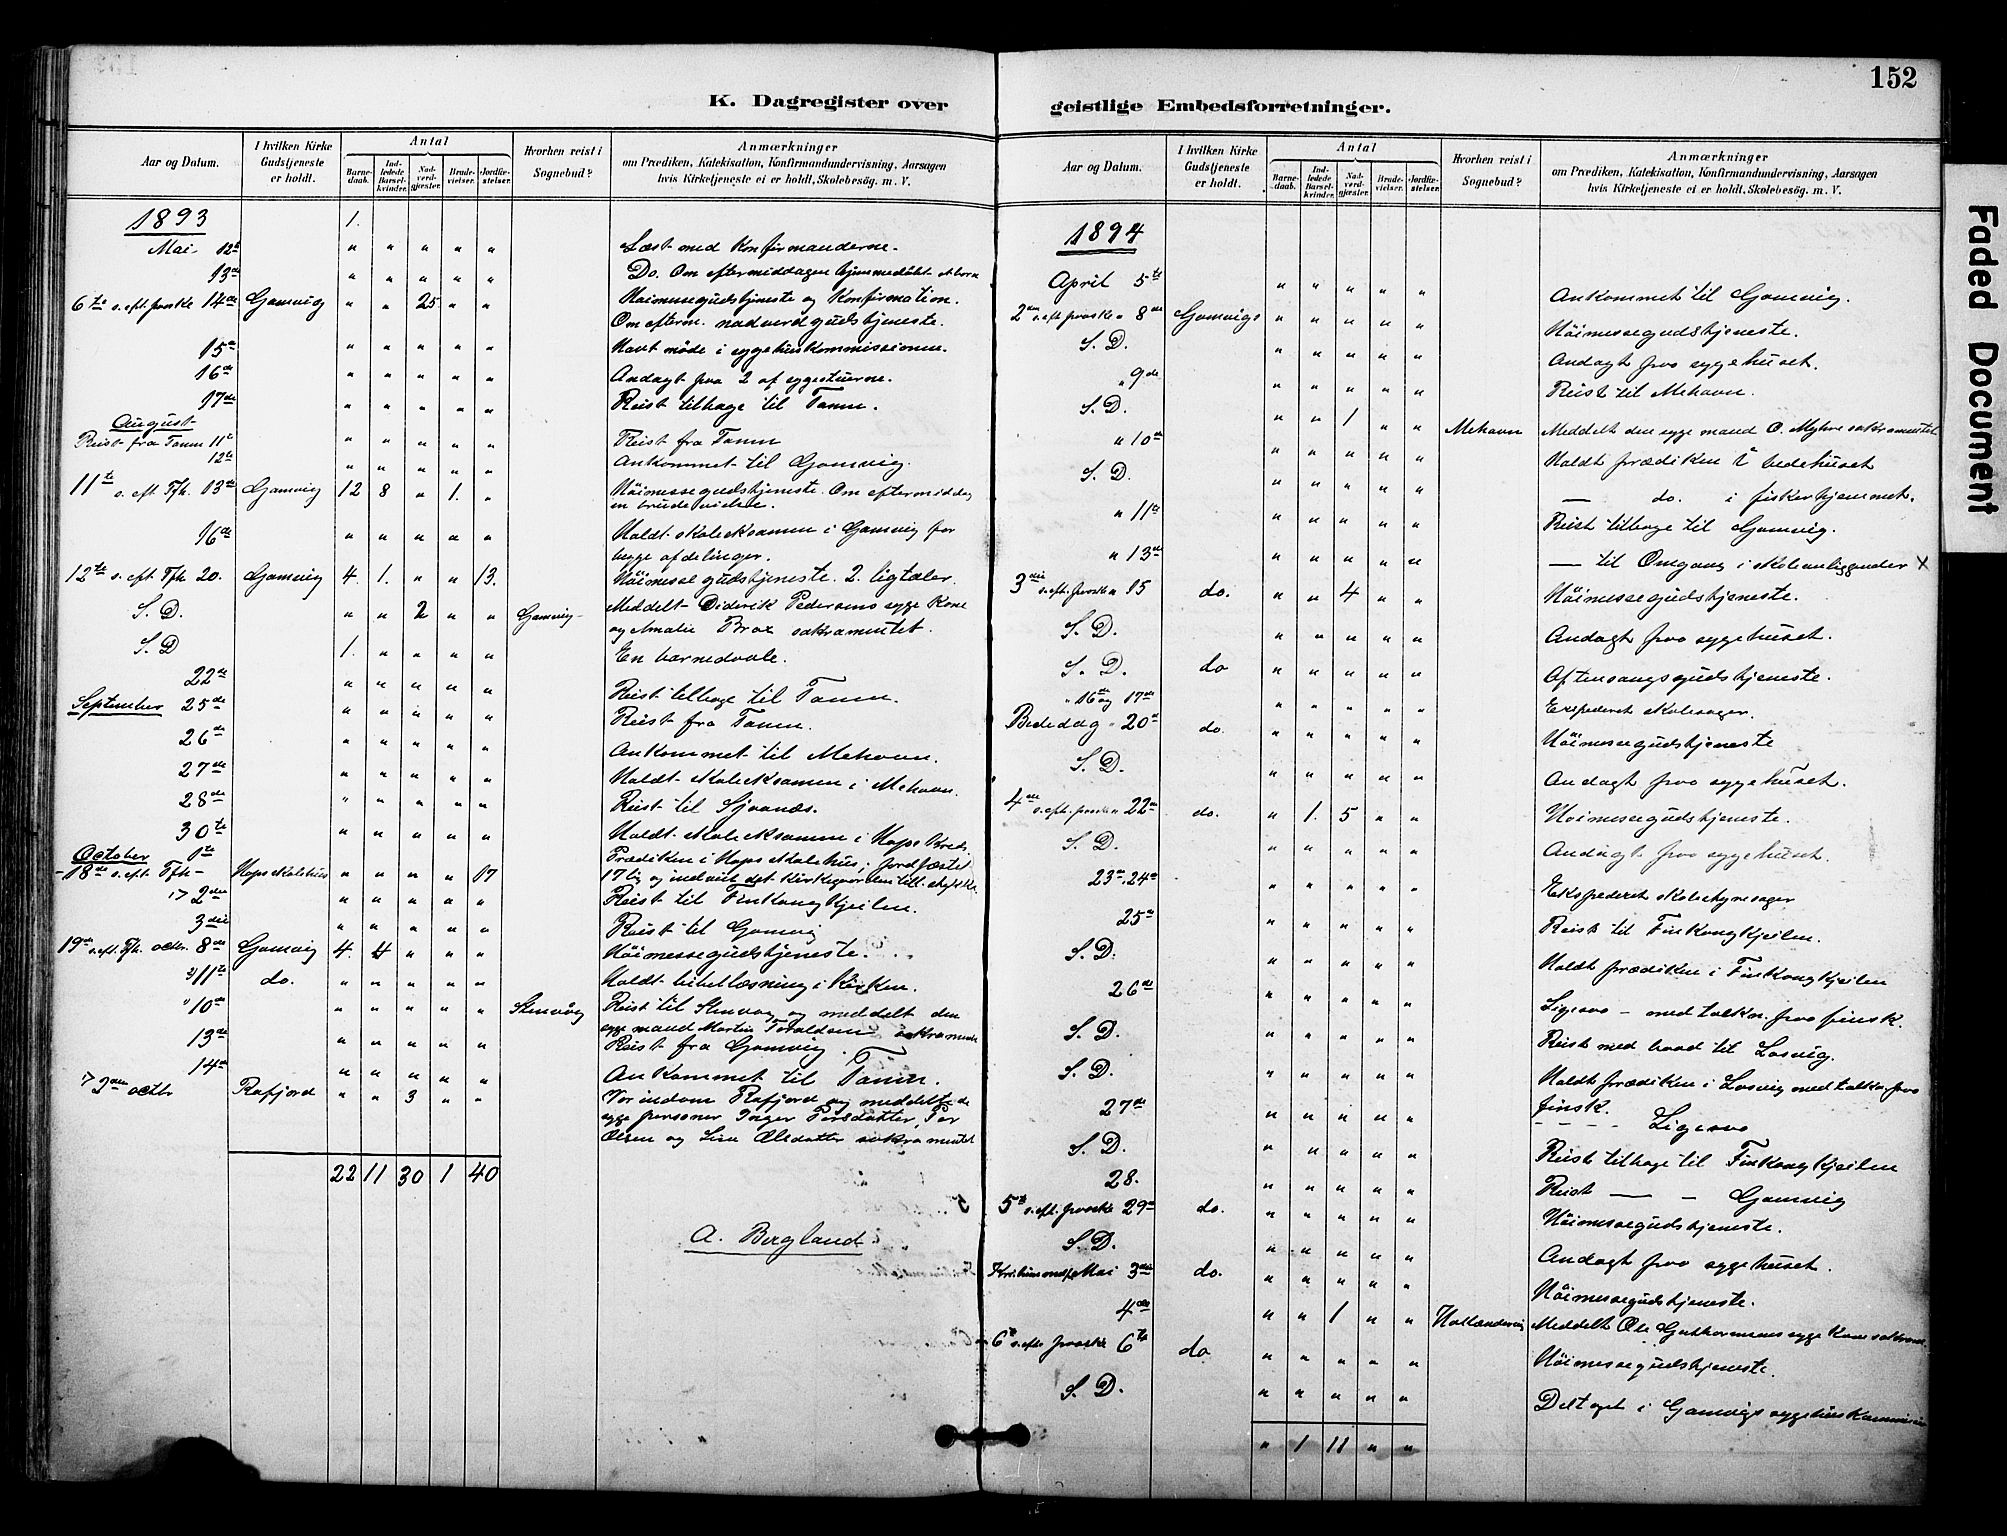 152
K. Dagregister over
geistlige Embedsforretninger.
Faded Document
Aar og Datum.
I hvilken Kirke Gudstjeneste er holdt.
Antal
Barne-daab.
Ind-ledede Barsel-kvinder.
Nad-verd-gjester.
Brude-vielser.
Jordfæ-stelser.
Hvorhen reist i Sognebud?
Anmærkninger
om Prædiken, Katekisation, Konfirmandundervisning, Aarsagen
hvis Kirketjeneste ei er holdt, Skolebesøg. m. V.
1893 1.
Mai 12te " " " " " Læst med Konfirmanderne.
13de " " " " " Do. Om eftermiddagen
6te s. eft. paaske 14de Gamvig " " 25 " " Høimessegudstjeneste og Konfirmation.
Om efterm. nadverdgudstjeneste.
15de " " " " " Havt møde i sygehuskommissionen.
16de " " " " " Andagt paa 2 af sygestuerne.
17de " " " " " Reist tilbage til Tanen.
August
Reist fra Tanen 11te " " " " " Reist fra Tanen
12te " " " " " Ankommet til Gamvig.
11te s. eft. Tfh. 13de Gamvig 12 8 " 1. " Høimessegudstjeneste. Om eftermiddag
en brudevielse.
16de " " " " " Holdt skoleeksamen i Gamvig for
begge afdelinger.
12te s. eft. Tfh 20. Gamvig 4. 1. " " 13. Høimessegudstjeneste. 2. ligtaler.
S. D. " " 2 " " Gamvig Meddelt Diderik Pedersens syge Kone
og Amalie Brox sakramentet.
S. D 1. " " " " En barnedaab.
22de " " " " " Reist tilbage til Tanen.
September 25de " " " " " Reist fra Tanen.
26de " " " " " Ankommet til Mehavn.
27de " " " " " Holdt skoleeksamen i Mehavn.
28de " " " " " Reist til Sjaanæs.
30te " " " " " Holdt skoleeksamen i Hops Kreds.
October 1te Prædiken i Hops skolehus; jordfæstet
18de s. eft. Tfh Hops skolehus " " " " 17 17 lig og indviet det kirkegaarden
2den " " " " " Reist til Finkongkjeilen.
3die " " " " " Reist til Gamvig
19de s. eft. Tfh. octbr. 8de Gamvig 4. 4 " " " Høimessegudstjeneste.
11te do. " " " " " Holdt bibellæsning i kirken.
10de " " " " " Stenvåg Reist til Stenvag og meddelt den
syge mand Martin Toraldsen sakrament
13de " " " " " Reist fra Gamvig.
14de " " " " " Ankommet til Tanen.
2den octbr Rafjord " " 3 " " Var indom Rafjord og meddelte de
syge personer Inger Persdatter, Per
Olsen og Lise Olsdatter sakramentet
22 11 30 1 40
A. Bergland
Aar og Datum.
I hvilken Kirke Gudstjeneste er holdt.
Antal
Barne-daab.
Ind-ledede Barsel-kvinder.
Nad-verd-gjester.
Brude-vielser.
Jordfæ-stelser.
Hvorhen reist i Sognebud?
Anmærkninger
om Prædiken, Katekisation, Konfirmandundervisning, Aarsagen
hvis Kirketjeneste ei er holdt, Skolebesøg. m. V.
1894
April 5te " " " " " Ankommet til Gamvig.
2den s. eft. paaske " 8de Gamvigs " " " " " Høimessegudstjeneste.
S. D. " " " " " Andagt paa sygehuset.
" 9de " " " " " Reist til Mehavn.
S. D. " " 1 " " Mehavn Meddelt den syge mand O. Myhre sakramentet
" 10de " " " " " Holdt prædiken i bedehuset
S. D. " " " " " — do. i fiskerhjemmet.
" 11te " " " " " Reist tilbage til Gamvig.
" 13de " " " " " — til Omgang i skoleanliggender X
3die s. eft. paaske " 15 do. " " 4 " " Høimessegudstjeneste.
S. D. " " " " " Andagt paa sygehuset.
S. D. do " " " " " Aftensangsgudstjeneste.
" 16de og 17de " " " " " Expederet skolesager.
Bededag " 20de do. " " " " " Høimessegudstjeneste
S. D. " " " " " Andagt paa sygehuset.
4de s. eft. paaske " 22de do. " 1. 5 " " Høimessegudstjeneste.
S. D. " " " " " Andagt paa sygehuset
23de, 24de " " " " " Ekspederet skolestyresager
25de " " " " " Reist til Finkongkjeilen.
S. D. " " " " " Holdt prædiken i Finkongkjeilen
26de " " " " " Ligesaa – med tolk paa finsk.
S. D. " " " " " Reist med baad til Losvig.
S. D. " " " " " Holdt prædiken i Losvig med tolk paa
27de " " " " " finsk. - - - - Ligesaa
S. D. " " " " " Reist tilbage til Finkongkjeilen
28. " " " " " Reist — – Gamvig
5te s. eft. paaske 29de do. " " " " " Høimessegudstjeneste.
S. D. " " " " " Andagt paa sygehuset.
Mai 3die do. " " " " " Høimessegudstjeneste.
4de " " 1 " " Hollandervig Meddelt Ole Guthormsens syge Kone
6te s. eft. paaske 6te do " " " " " Høimessegudstjeneste.
S. D. " " " " " Deltaget i Gamvigs sygehuskommission
" 1 11 " "